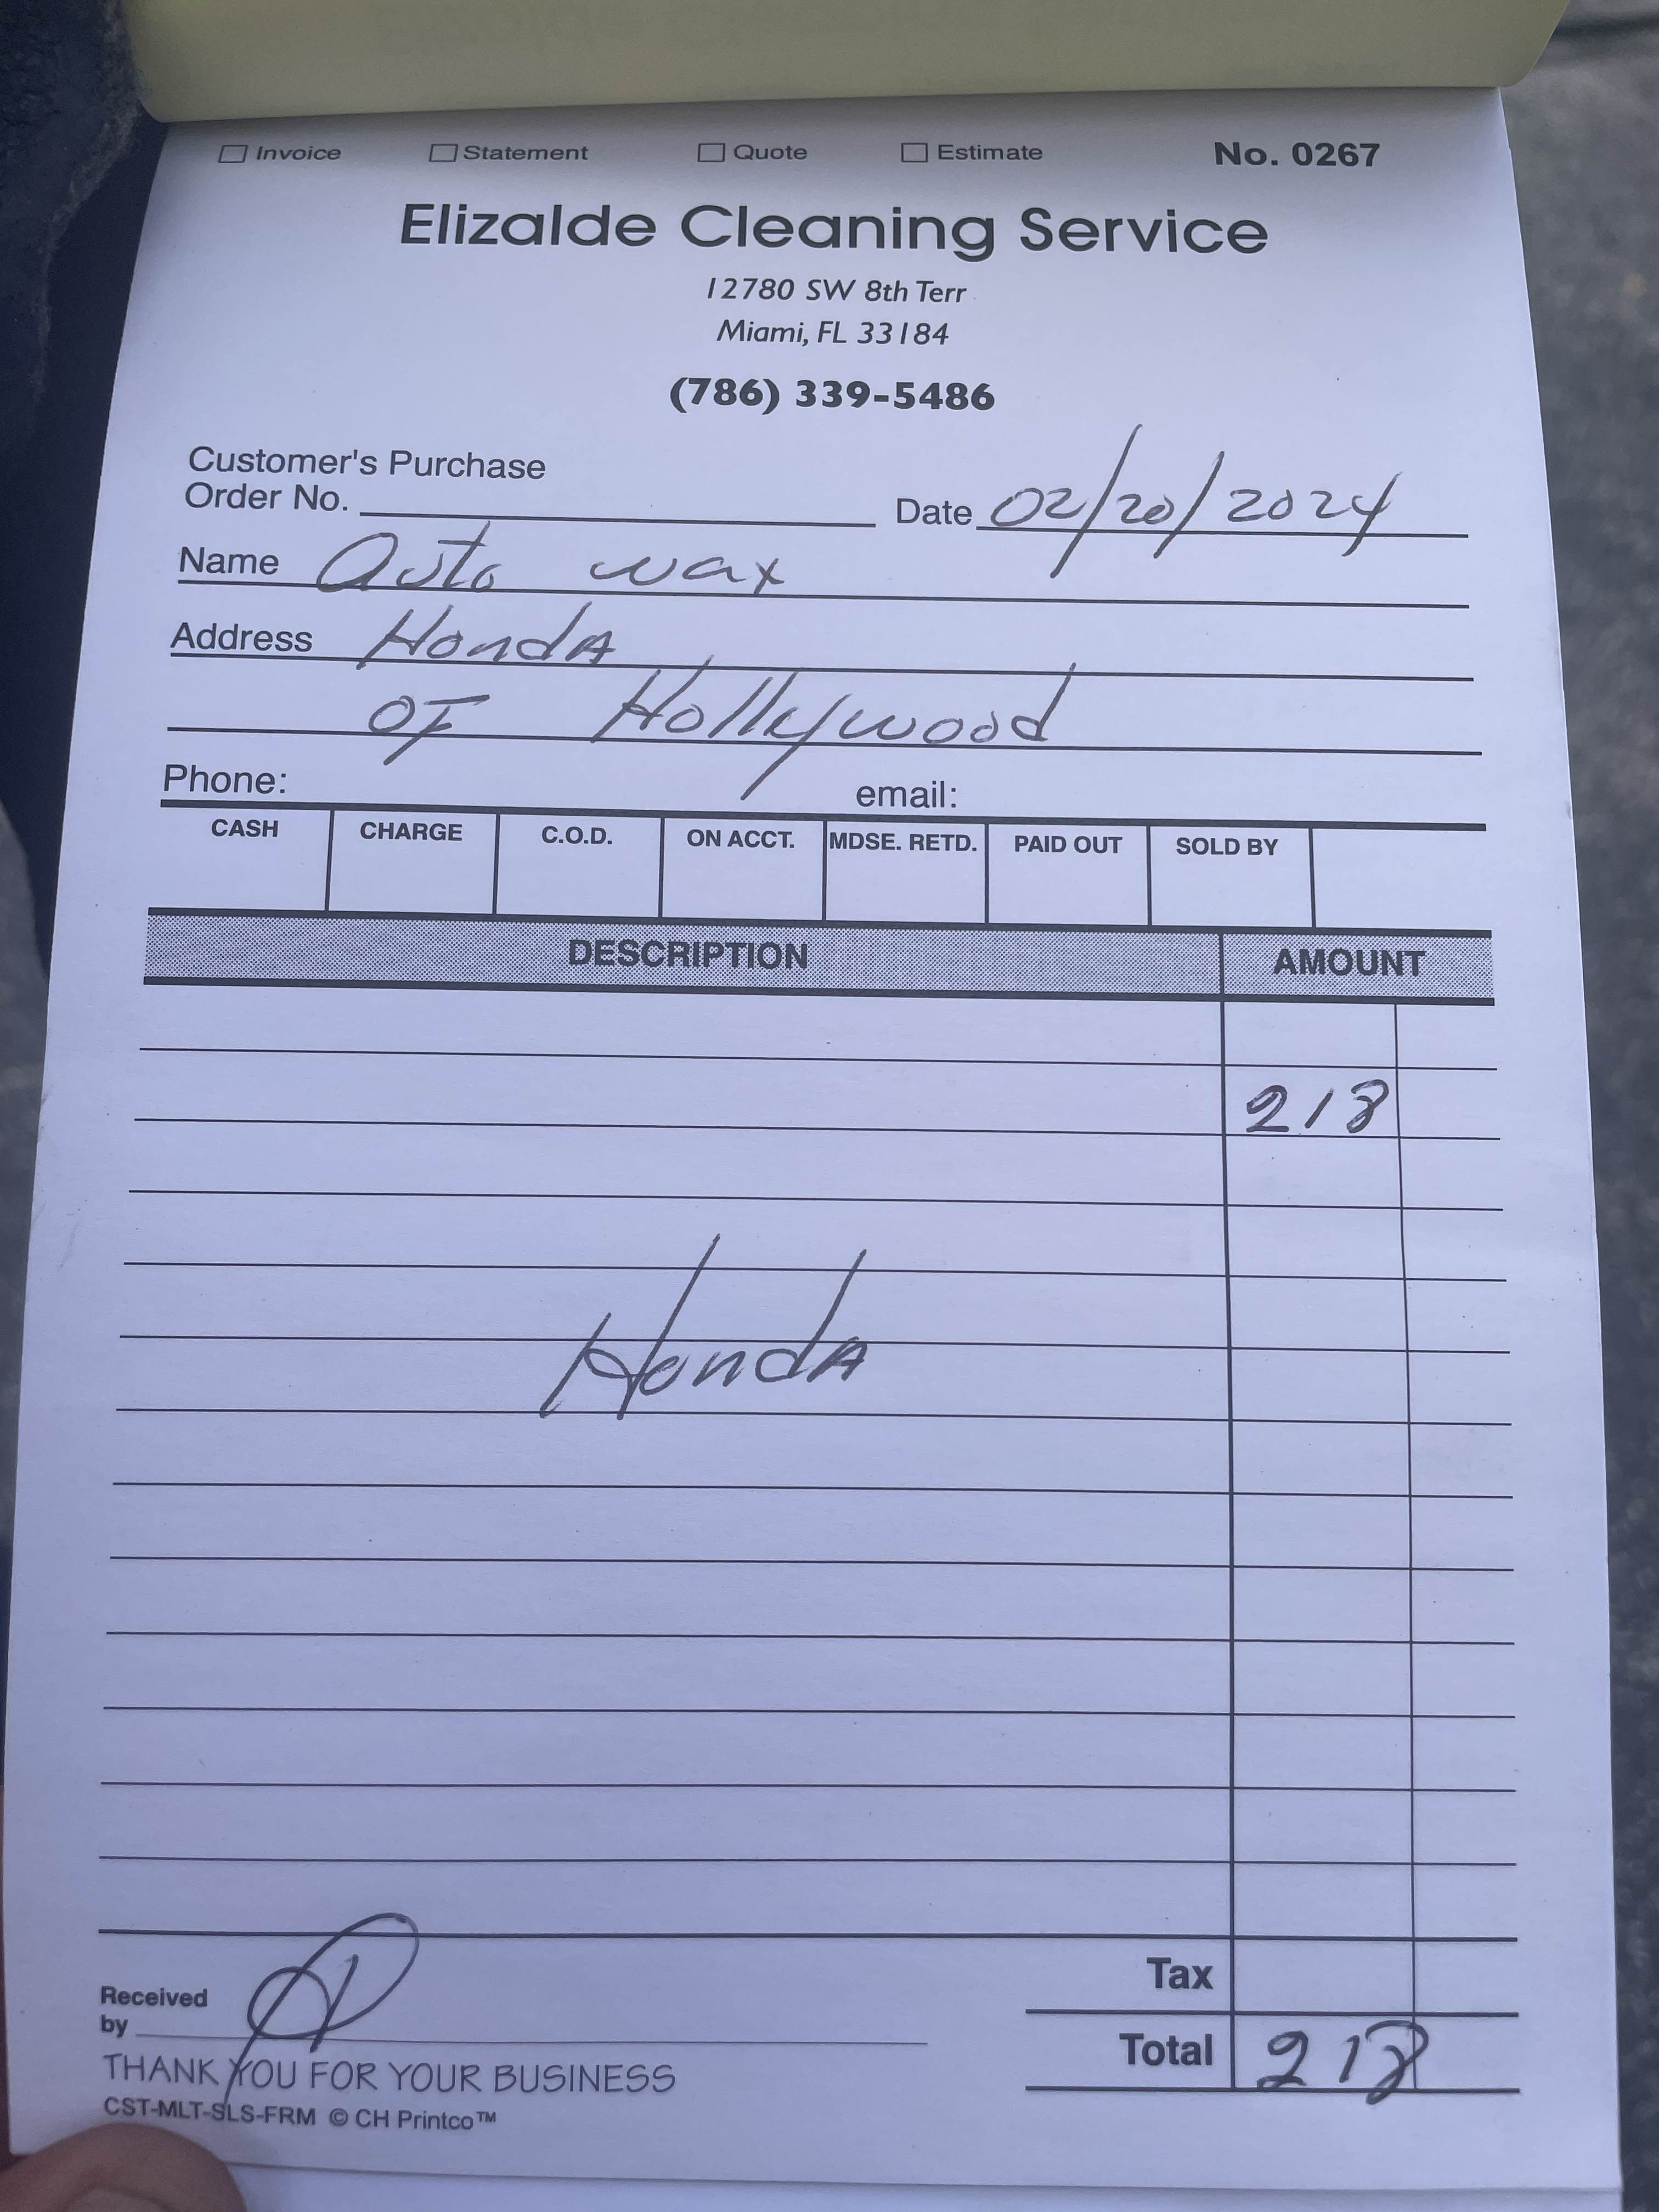 Invoice Statement Quote Estimate No. 0267
Elizalde Cleaning Service
12780 SW 8th Terr
Miami, FL 33184
(786) 339-5486
Customer's Purchase
Order No. Date 02/20/2024
Name Auto wax
Address Honda
OF Hollywood
Phone: email:
CASH CHARGE C.O.D. ON ACCT. MDSE. RETD. PAID OUT SOLD BY
DESCRIPTION AMOUNT
218
Honda
Tax
Received
by
Total 218
THANK YOU FOR YOUR BUSINESS
CST-MLT-SLS-FRM © CH Printco™